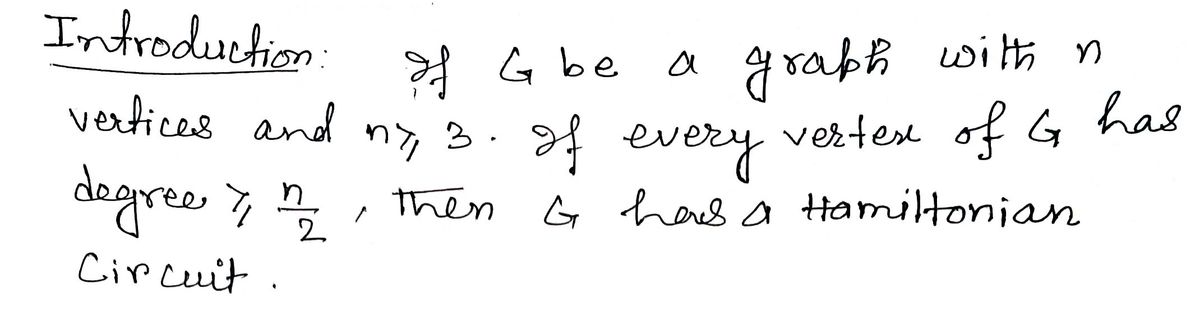 Introduction: If G be a graph with n
vertices and n ≥ 3. If every vertex of G has
degree ≥ n/2, then G has a Hamiltonian
Circuit.